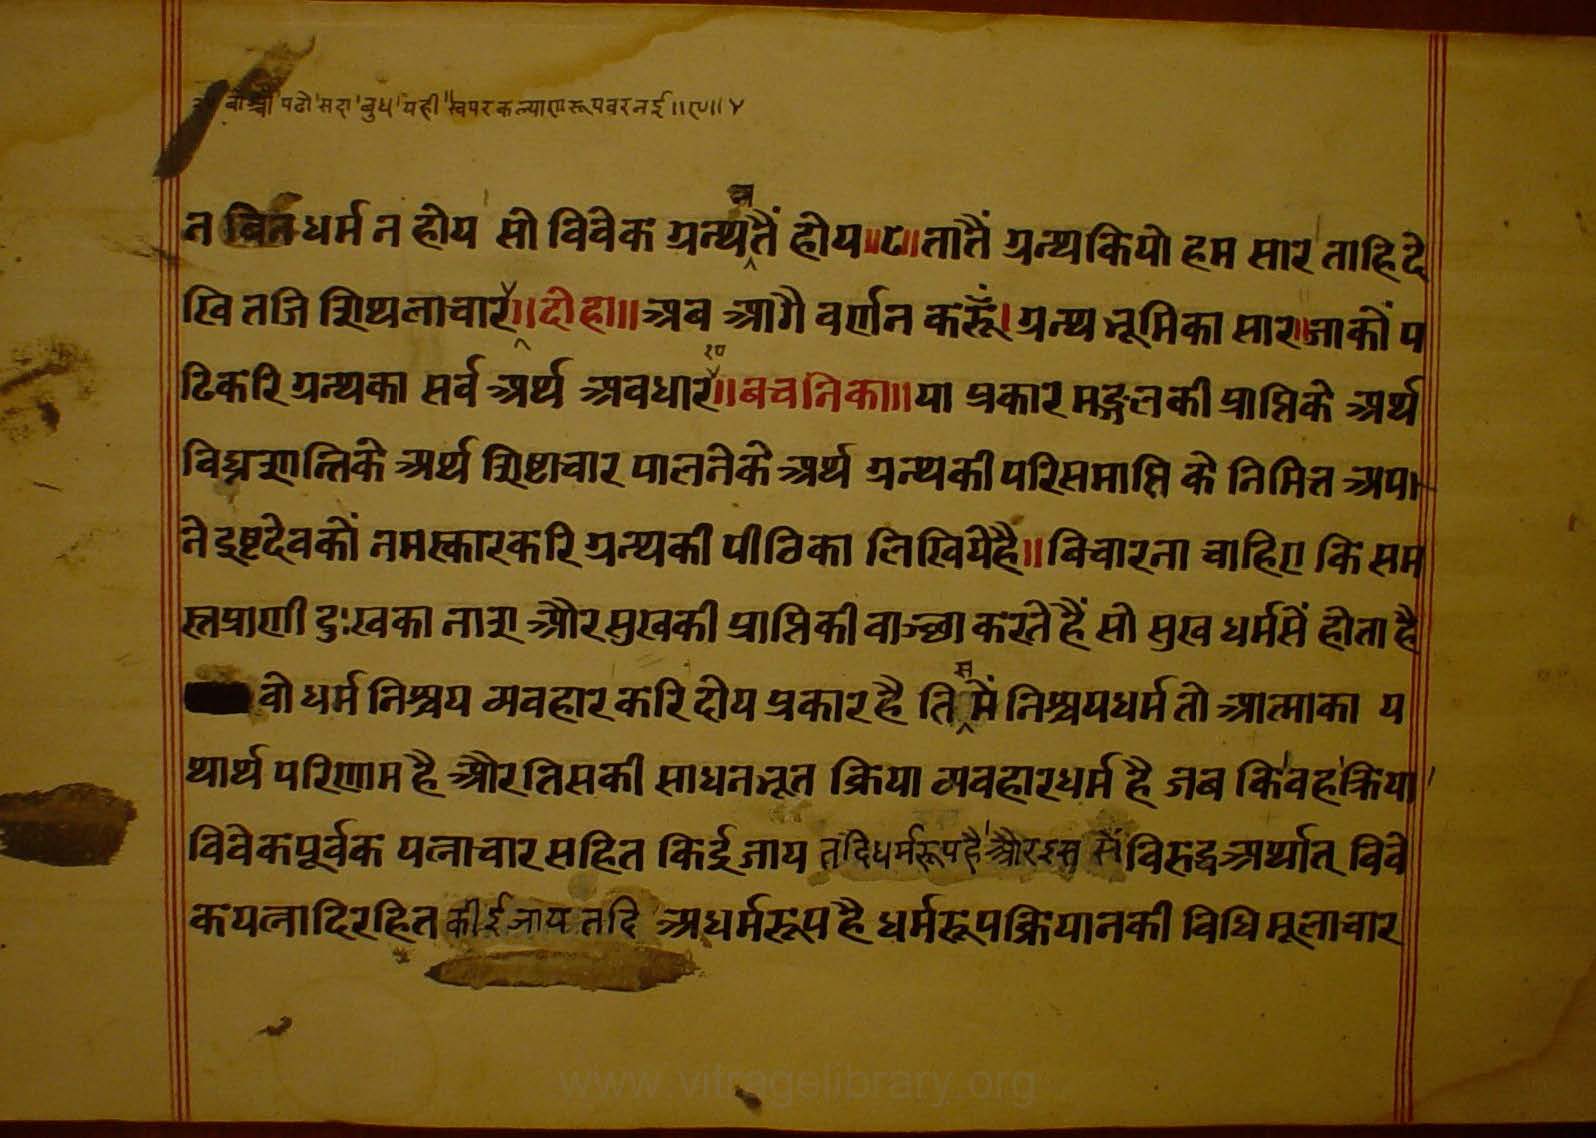 बाँचो पढो सदा बुध यही स्वपर कल्याण रूप वरनई ॥९॥ ४
न बिन धर्म न होय सो विवेक ग्रन्थनतैं होय॥८॥ तातैं ग्रन्थ कियो हम सार ताहि दे
खि तजि शिथलाचार॥ दोहा॥ अब आगै वर्णन करूँ। ग्रन्थ भूमिका सार॥ जाकों प
ढिकरि ग्रन्थका सर्व अर्थ अवधार॥१०॥ बचनिका॥ या प्रकार मङ्गलकी प्राप्तिके अर्थ
विघ्नशान्तिके अर्थ शिष्टाचार पालनेके अर्थ ग्रन्थकी परिसमाप्ति के निमित्त अपा
ने इष्टदेवकों नमस्कारकरि ग्रन्थकी पीठिका लिखियेहै॥ विचारना चाहिए कि सम
स्तप्राणी दुःखका नाश और सुखकी प्राप्तिकी वाञ्छा करते हैं सो सुख धर्मसें होता है
वो धर्म निश्चय व्यवहार करि दोय प्रकार है तिसमें निश्चयधर्म तो आत्माका य
थार्थ परिणाम है और तिसकी साधनभूत क्रिया व्यवहारधर्म है जब कि वह क्रिया
विवेकपूर्वक यत्नाचार सहित किई जाय तदि धर्मरूप है और इस सें विरुद्ध अर्थात् विवे
कयत्नादिरहित कीई जाय तदि अधर्मरूप है धर्मरूपक्रियानकी विधि मूलाचार
www.vitragelibrary.org